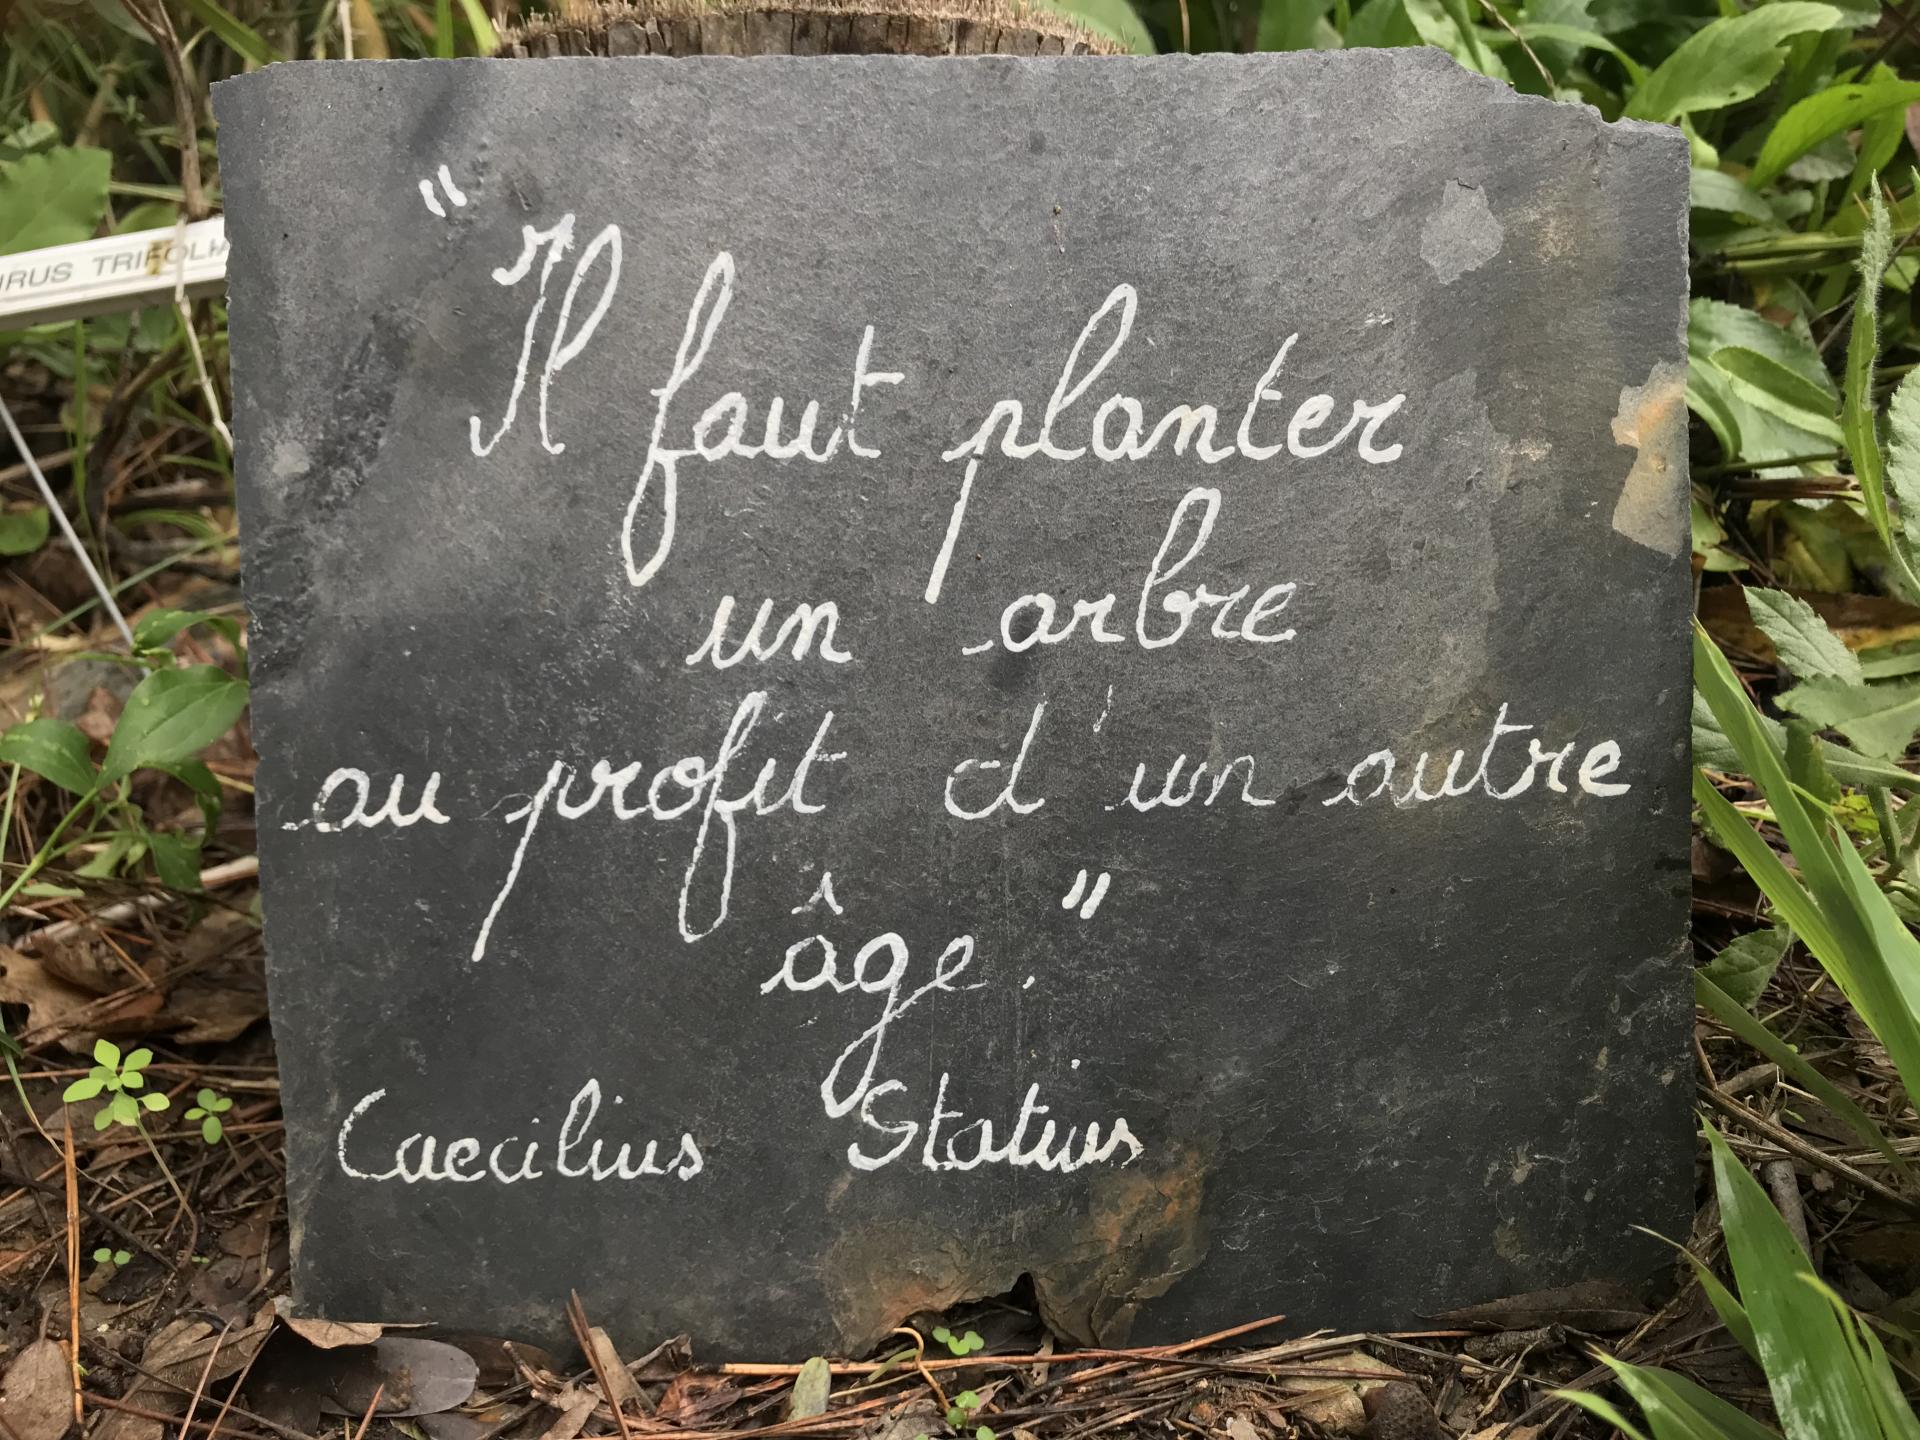 "Il faut planter
un arbre
au profit d'un autre
âge."
Caecilius Statius
TRIFOLIA